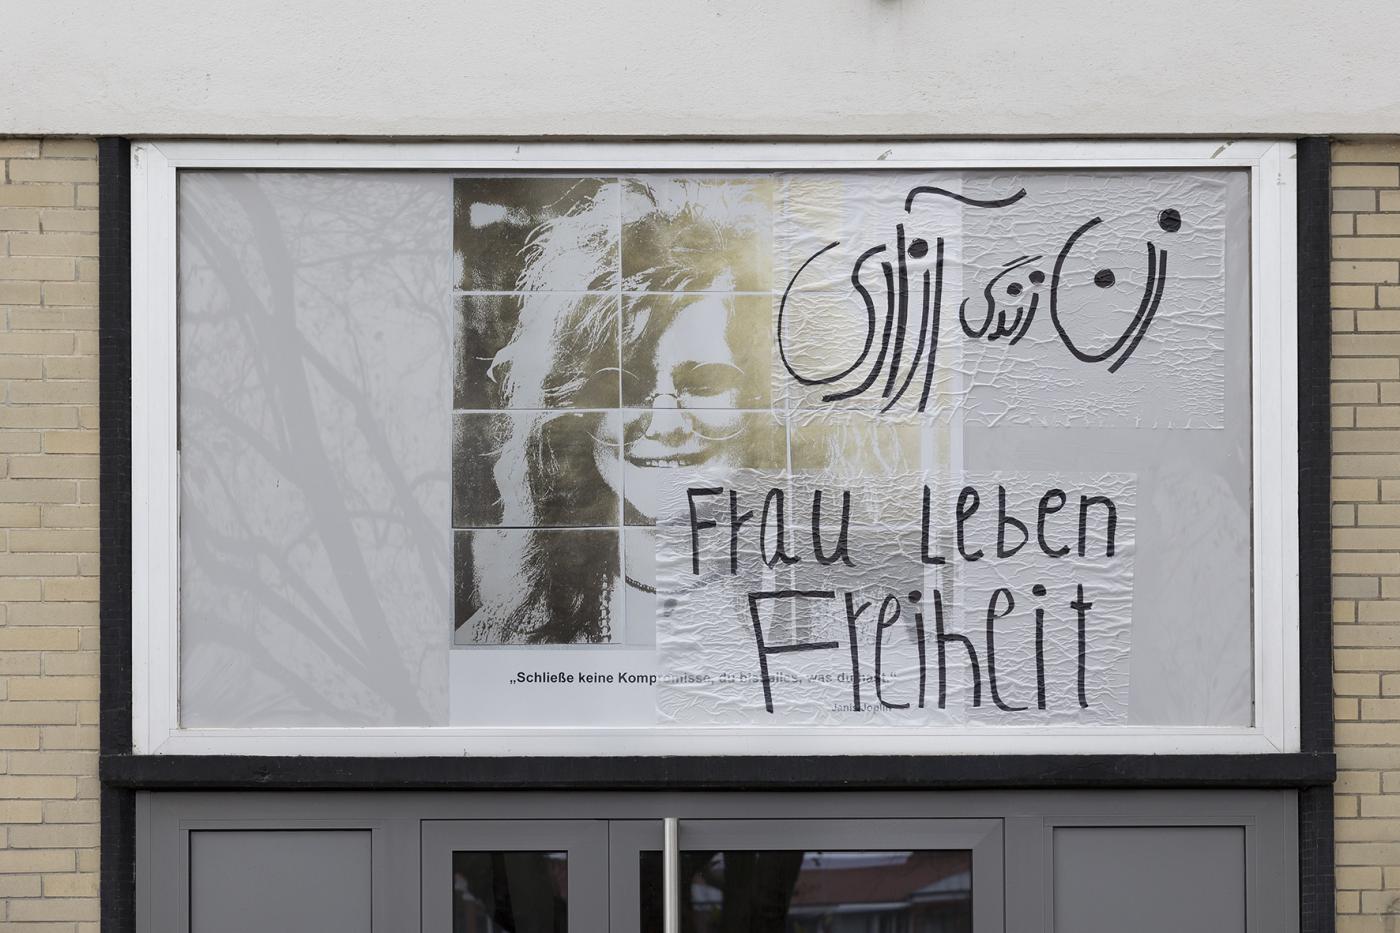 زن زندگی آزادی
Frau Leben
Freiheit
„Schließe keine Kompromisse, du bist alles, was du hast.“
Janis Joplin